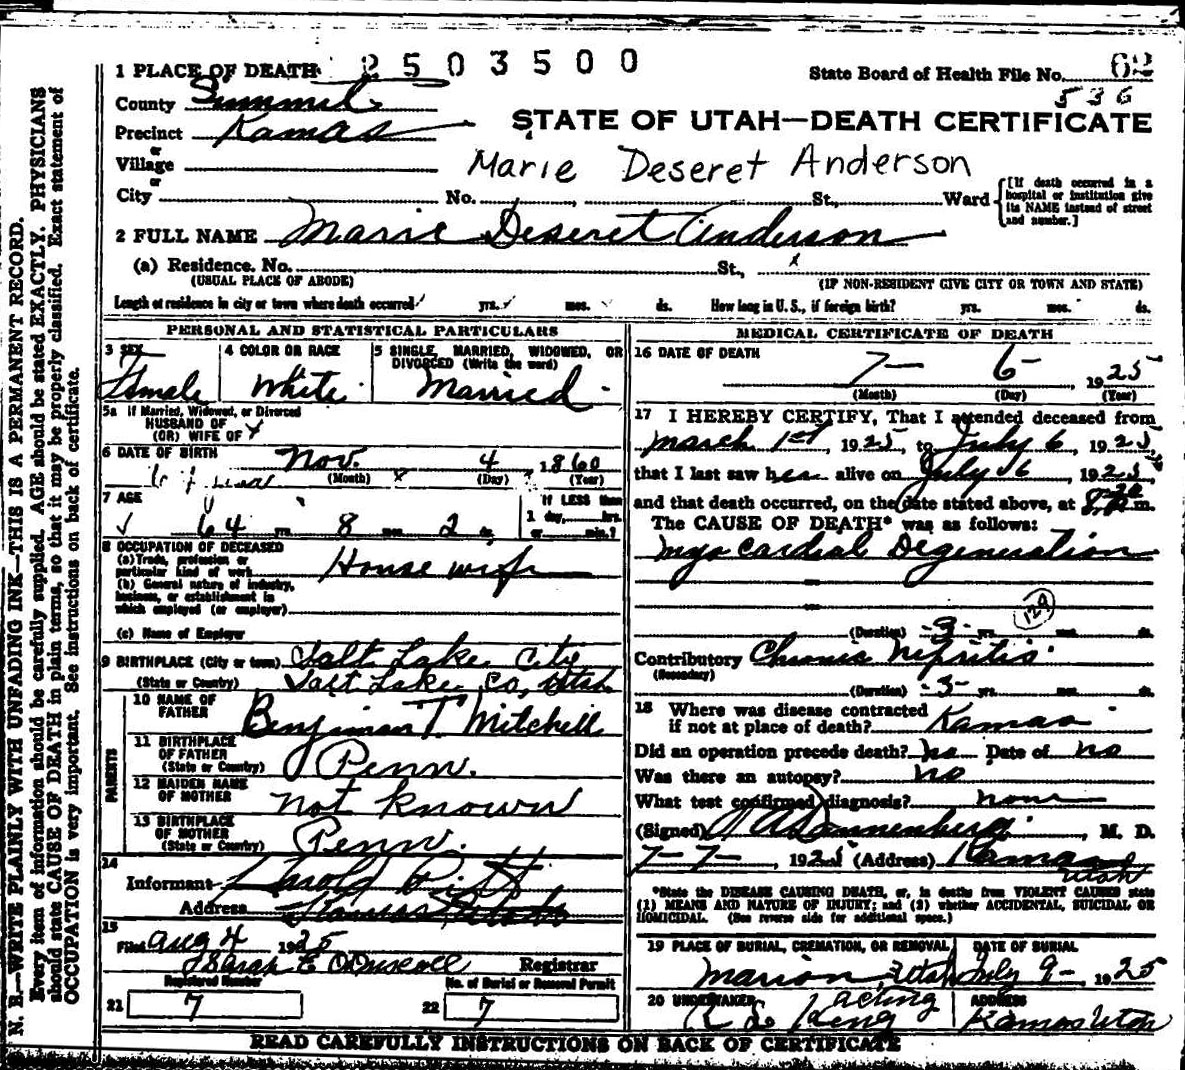 N. B.—WRITE PLAINLY WITH UNFADING INK—THIS IS A PERMANENT RECORD.
Every item of information should be carefully supplied. AGE should be stated EXACTLY. PHYSICIANS
should state CAUSE OF DEATH in plain terms, so that it may be properly classified. Exact statement of
OCCUPATION is very important. See instructions on back of certificate.
2503500
1 PLACE OF DEATH
State Board of Health File No. 62
536
County Summit
STATE OF UTAH—DEATH CERTIFICATE
Precinct Kamas
or
Village
Marie Deseret Anderson
or
City No. , St., Ward
[If death occurred in a hospital or institution give its NAME instead of street and number.]
2 FULL NAME Marie Deseret Anderson
(a) Residence. No. St.,
(USUAL PLACE OF ABODE) (IF NON-RESIDENT GIVE CITY OR TOWN AND STATE)
Length of residence in city or town where death occurred yrs. mos. ds. How long in U. S., if foreign birth? yrs. mos. ds.
PERSONAL AND STATISTICAL PARTICULARS
3 SEX
Female
4 COLOR OR RACE
White
5 SINGLE, MARRIED, WIDOWED, OR DIVORCED (Write the word)
Married
5a If Married, Widowed, or Divorced
HUSBAND OF
(OR) WIFE OF
6 DATE OF BIRTH Nov. 4 1860
(Month) (Day) (Year)
7 AGE
64 yrs. 8 mos. 2 ds.
If LESS than
1 day, hrs.
or min.?
8 OCCUPATION OF DECEASED
(a) Trade, profession or
particular kind of work House wife
(b) General nature of industry,
business, or establishment in
which employed (or employer)
(c) Name of Employer
9 BIRTHPLACE (City or town) Salt Lake City
(State or Country) Salt Lake Co, Utah
PARENTS
10 NAME OF
FATHER Benjiman T. Mitchell
11 BIRTHPLACE
OF FATHER
(State or Country) Penn.
12 MAIDEN NAME
OF MOTHER not known
13 BIRTHPLACE
OF MOTHER
(State or Country) Penn.
14
Informant Harold Pitt
Address Kamas Utah
15
Filed Aug 4 1925
Sarah E O'Driscoll Registrar
Registered Number
21 7
No. of Burial or Removal Permit
22 7
MEDICAL CERTIFICATE OF DEATH
16 DATE OF DEATH
7— 6— , 1925
(Month) (Day) (Year)
17 I HEREBY CERTIFY, That I attended deceased from
March 1st , 1925, to July 6 , 1925,
that I last saw her alive on July 6 , 1925,
and that death occurred, on the date stated above, at m.
The CAUSE OF DEATH* was as follows:
Myocardial Degeneration
129
(Duration) -3- yrs. mos. ds.
Contributory Chronic Nefritis
(Secondary)
(Duration) -3- yrs. mos. ds.
18 Where was disease contracted
if not at place of death? Kamas
Did an operation precede death? no Date of no
Was there an autopsy? no
What test confirmed diagnosis? none
(Signed) Dannenberg , M. D.
7-7- , 1925 (Address) Kamas
Utah
*State the DISEASE CAUSING DEATH, or, in deaths from VIOLENT CAUSES state
(1) MEANS AND NATURE OF INJURY; and (2) whether ACCIDENTAL, SUICIDAL OR
HOMICIDAL. (See reverse side for additional space.)
19 PLACE OF BURIAL, CREMATION, OR REMOVAL
Marion, Utah
DATE OF BURIAL
July 9- 1925
20 UNDERTAKER
acting
ADDRESS
Kamas Utah
READ CAREFULLY INSTRUCTIONS ON BACK OF CERTIFICATE